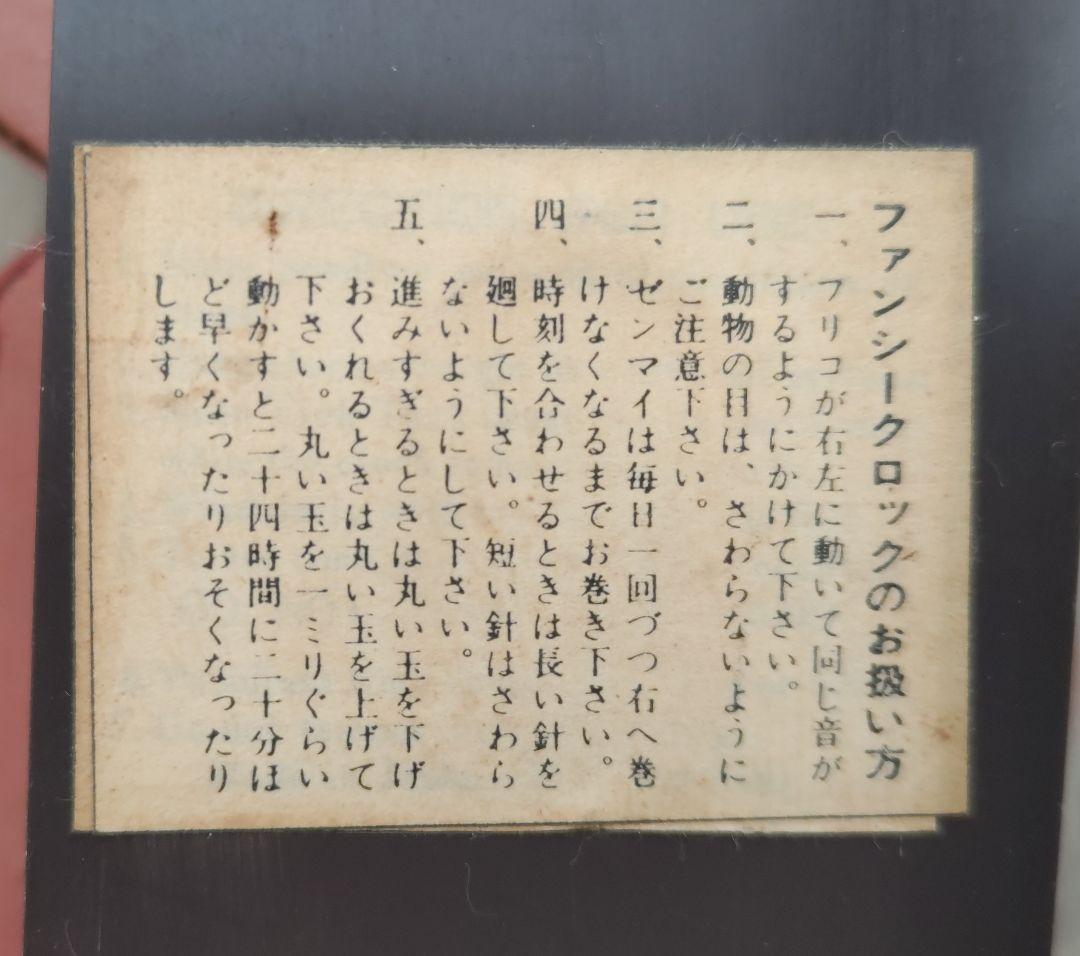 ファンシークロックのお扱い方
一、フリコが右左に動いて同じ音が
するようにかけて下さい。
二、動物の目は、さわらないように
ご注意下さい。
三、ゼンマイは毎日一回づつ右へ巻
けなくなるまでお巻き下さい。
四、時刻を合わせるときは長い針を
廻して下さい。短い針はさわら
ないようにして下さい。
五、進みすぎるときは丸い玉を下げ
おくれるときは丸い玉を上げて
下さい。丸い玉を一ミリぐらい
動かすと二十四時間に二十分ほ
ど早くなったりおそくなったり
します。